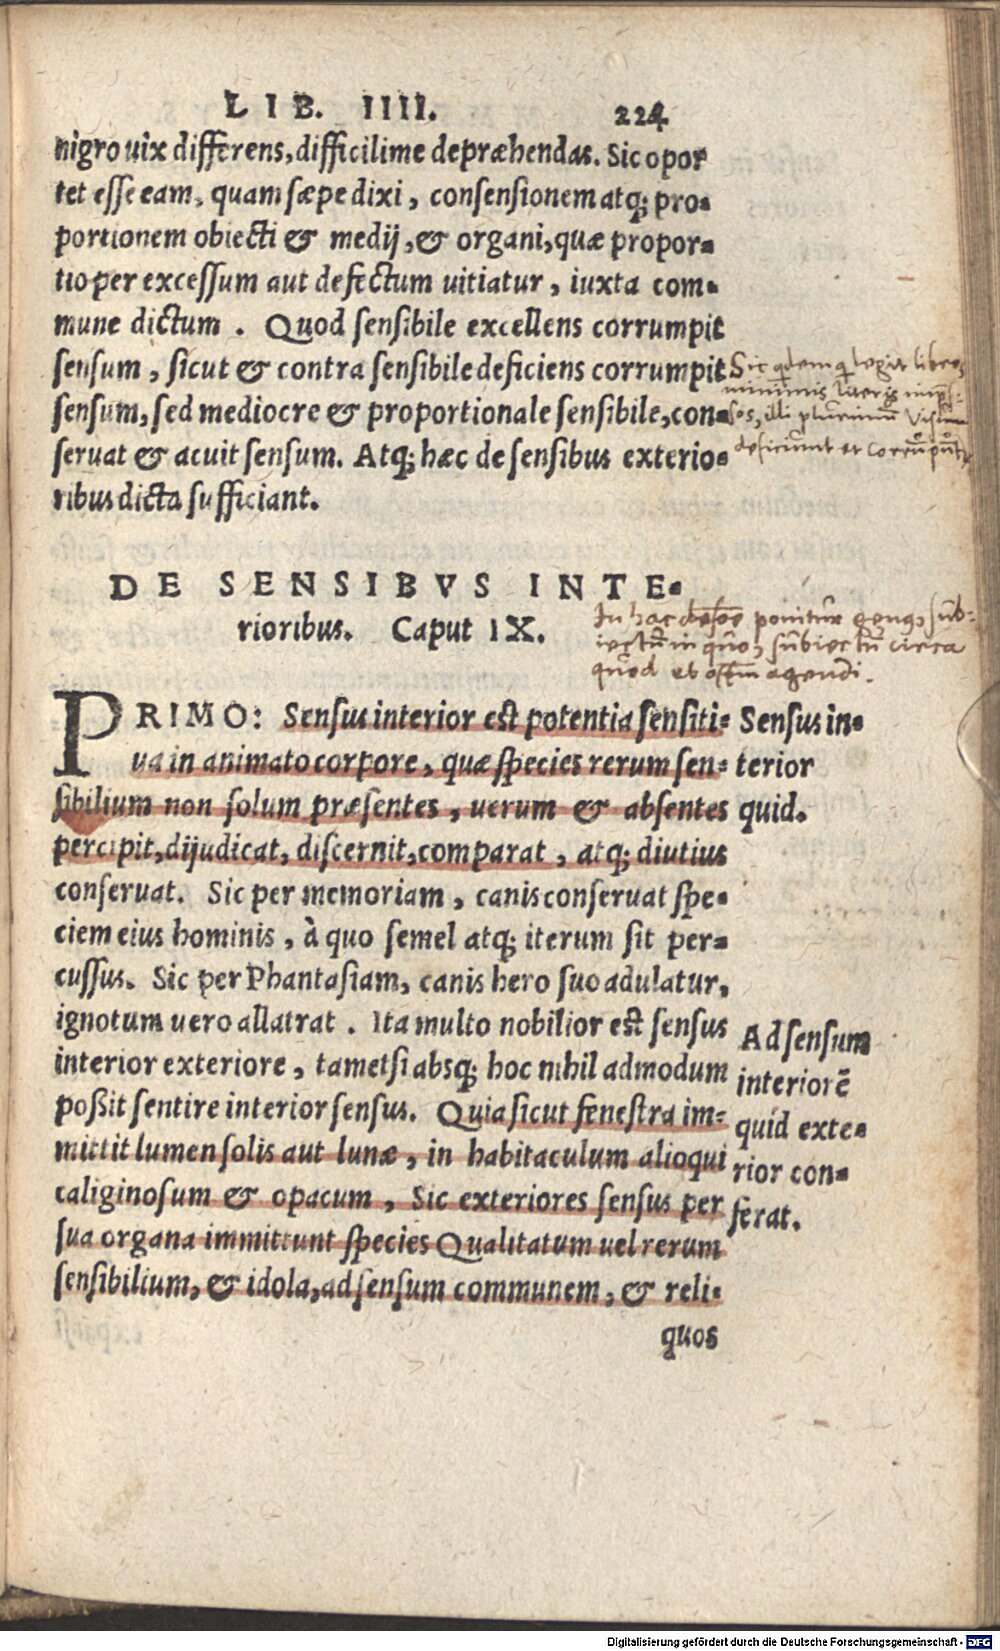 LIB. IIII. 224
nigro uix differens, difficilime depræhendas. Sic opor
tet esse eam, quam sæpe dixi, consensionem atq; pro-
portionem obiecti & medij, & organi, quæ propor-
tio per excessum aut defectum uitiatur, iuxta com-
mune dictum. Quod sensibile excellens corrumpit
sensum, sicut & contra sensibile deficiens corrumpit
sensum, sed mediocre & proportionale sensibile, con-
seruat & acuit sensum. Atq; hæc de sensibus exterio-
ribus dicta sufficiant.
Sic qdem q legit libros
minimis literis imps-
sos, illi plurimum visum
deficiunt et corrumpunt
DE SENSIBVS INTE-
rioribus. Caput IX.
In hac ponitur genus, sub-
iectum in quo, subiectum circa
quod et agendi.
PRIMO: Sensus interior est potentia sensiti-
ua in animato corpore, quæ species rerum sen-
sibilium non solum præsentes, uerum & absentes
percipit, dijudicat, discernit, comparat, atq; diutius
conseruat. Sic per memoriam, canis conseruat spe-
ciem eius hominis, à quo semel atq; iterum sit per-
cussus. Sic per Phantasiam, canis hero suo adulatur,
ignotum uero allatrat. Ita multo nobilior est sensus
interior exteriore, tametsi absq; hoc nihil admodum
poßit sentire interior sensus. Quia sicut fenestra im-
mittit lumen solis aut lunæ, in habitaculum alioqui
caliginosum & opacum, Sic exteriores sensus per
sua organa immittunt species Qualitatum uel rerum
sensibilium, & idola, ad sensum communem, & reli-
quos
Sensus in-
terior
quid.
Ad sensum
interiorē
quid exte-
rior con-
ferat.
Digitalisierung gefördert durch die Deutsche Forschungsgemeinschaft - DFG